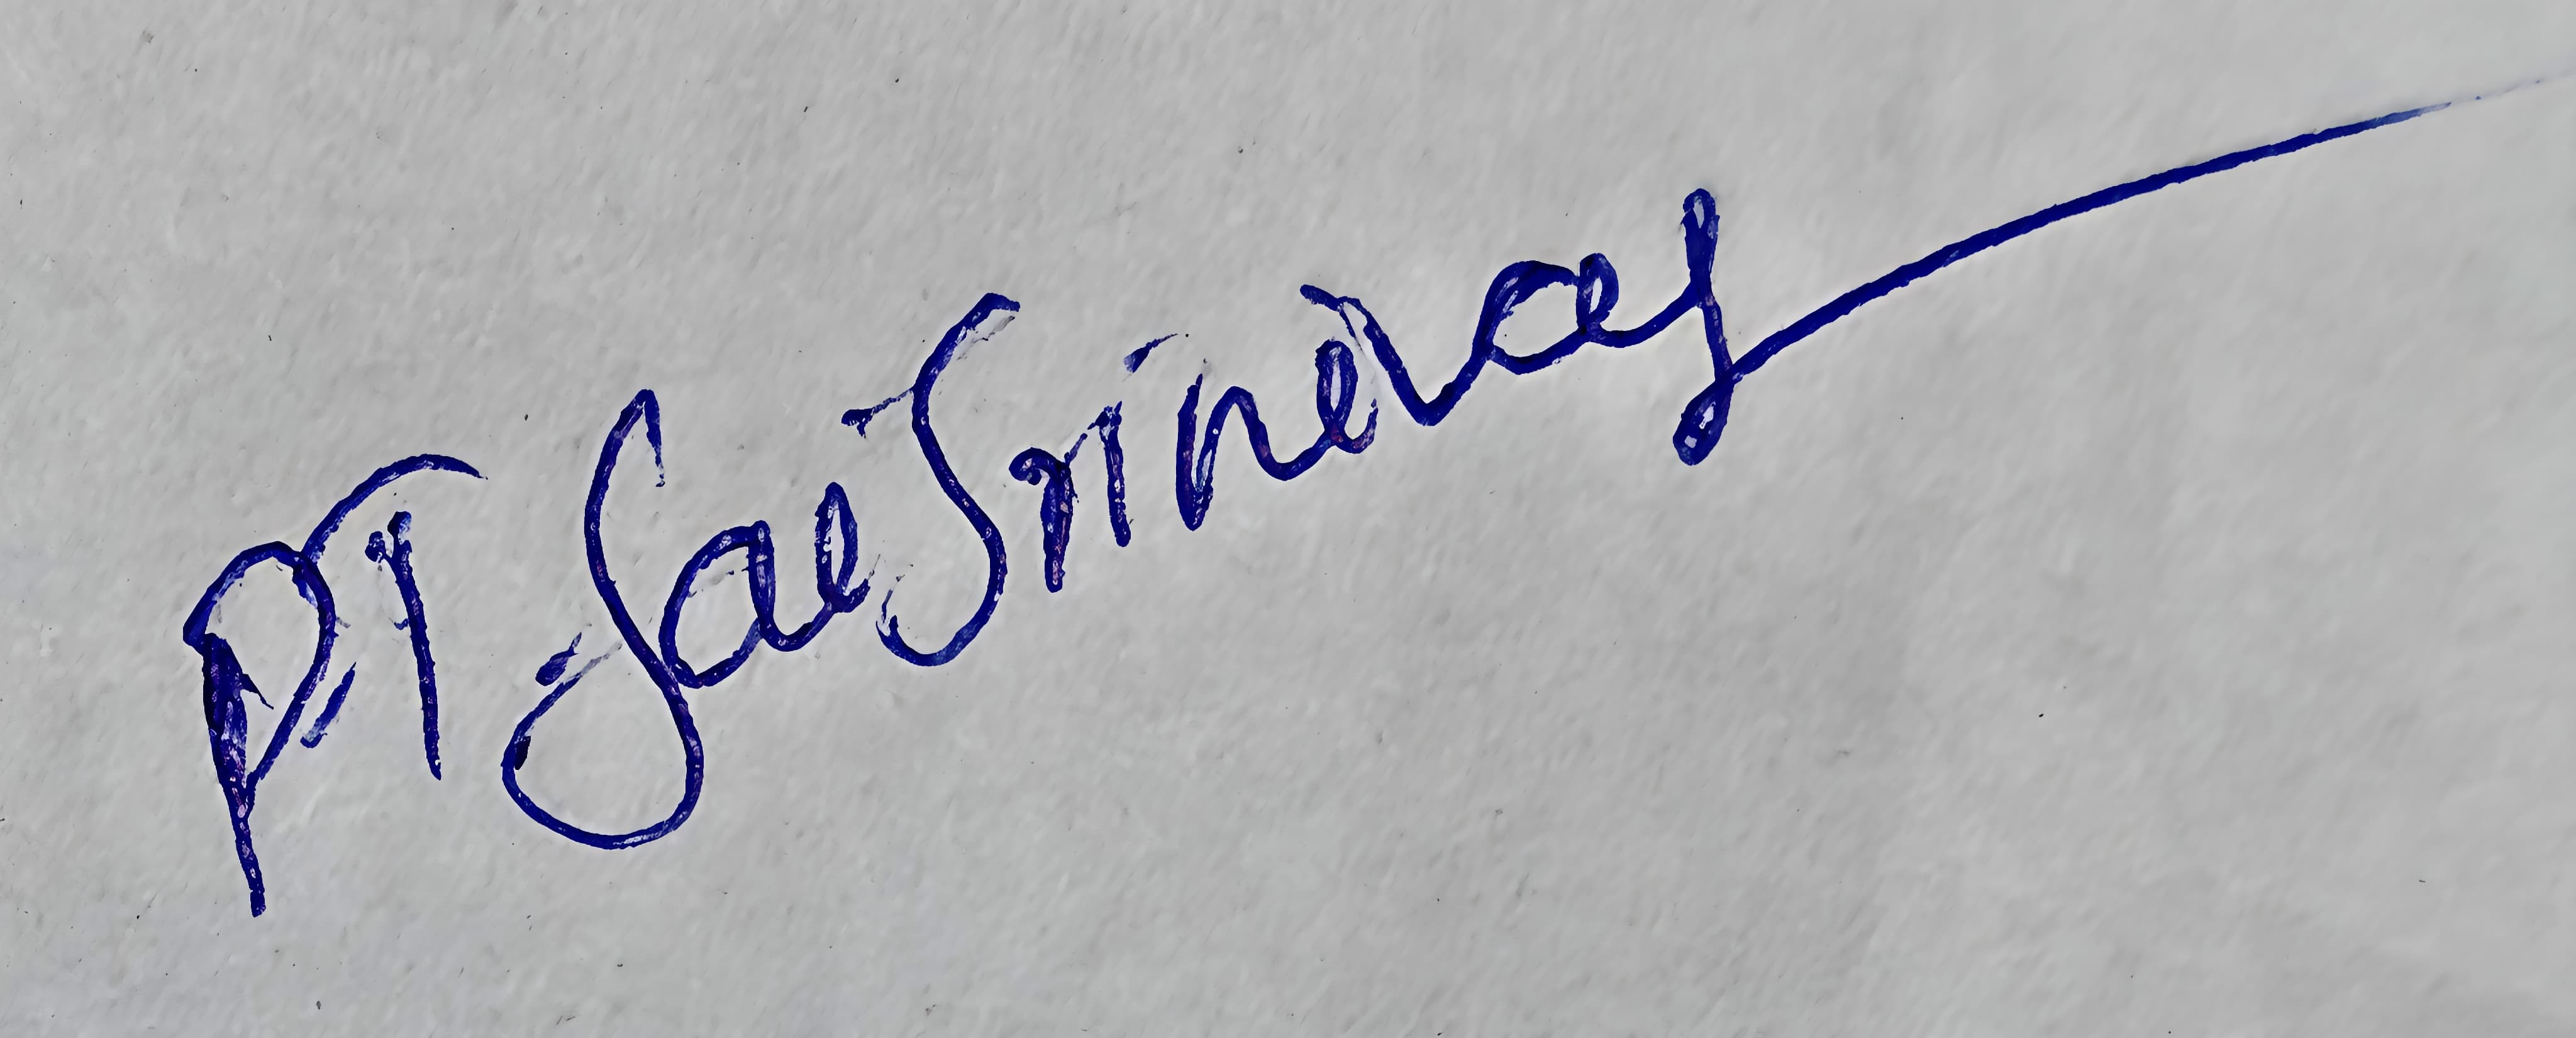 P.T. Sai Srinivas